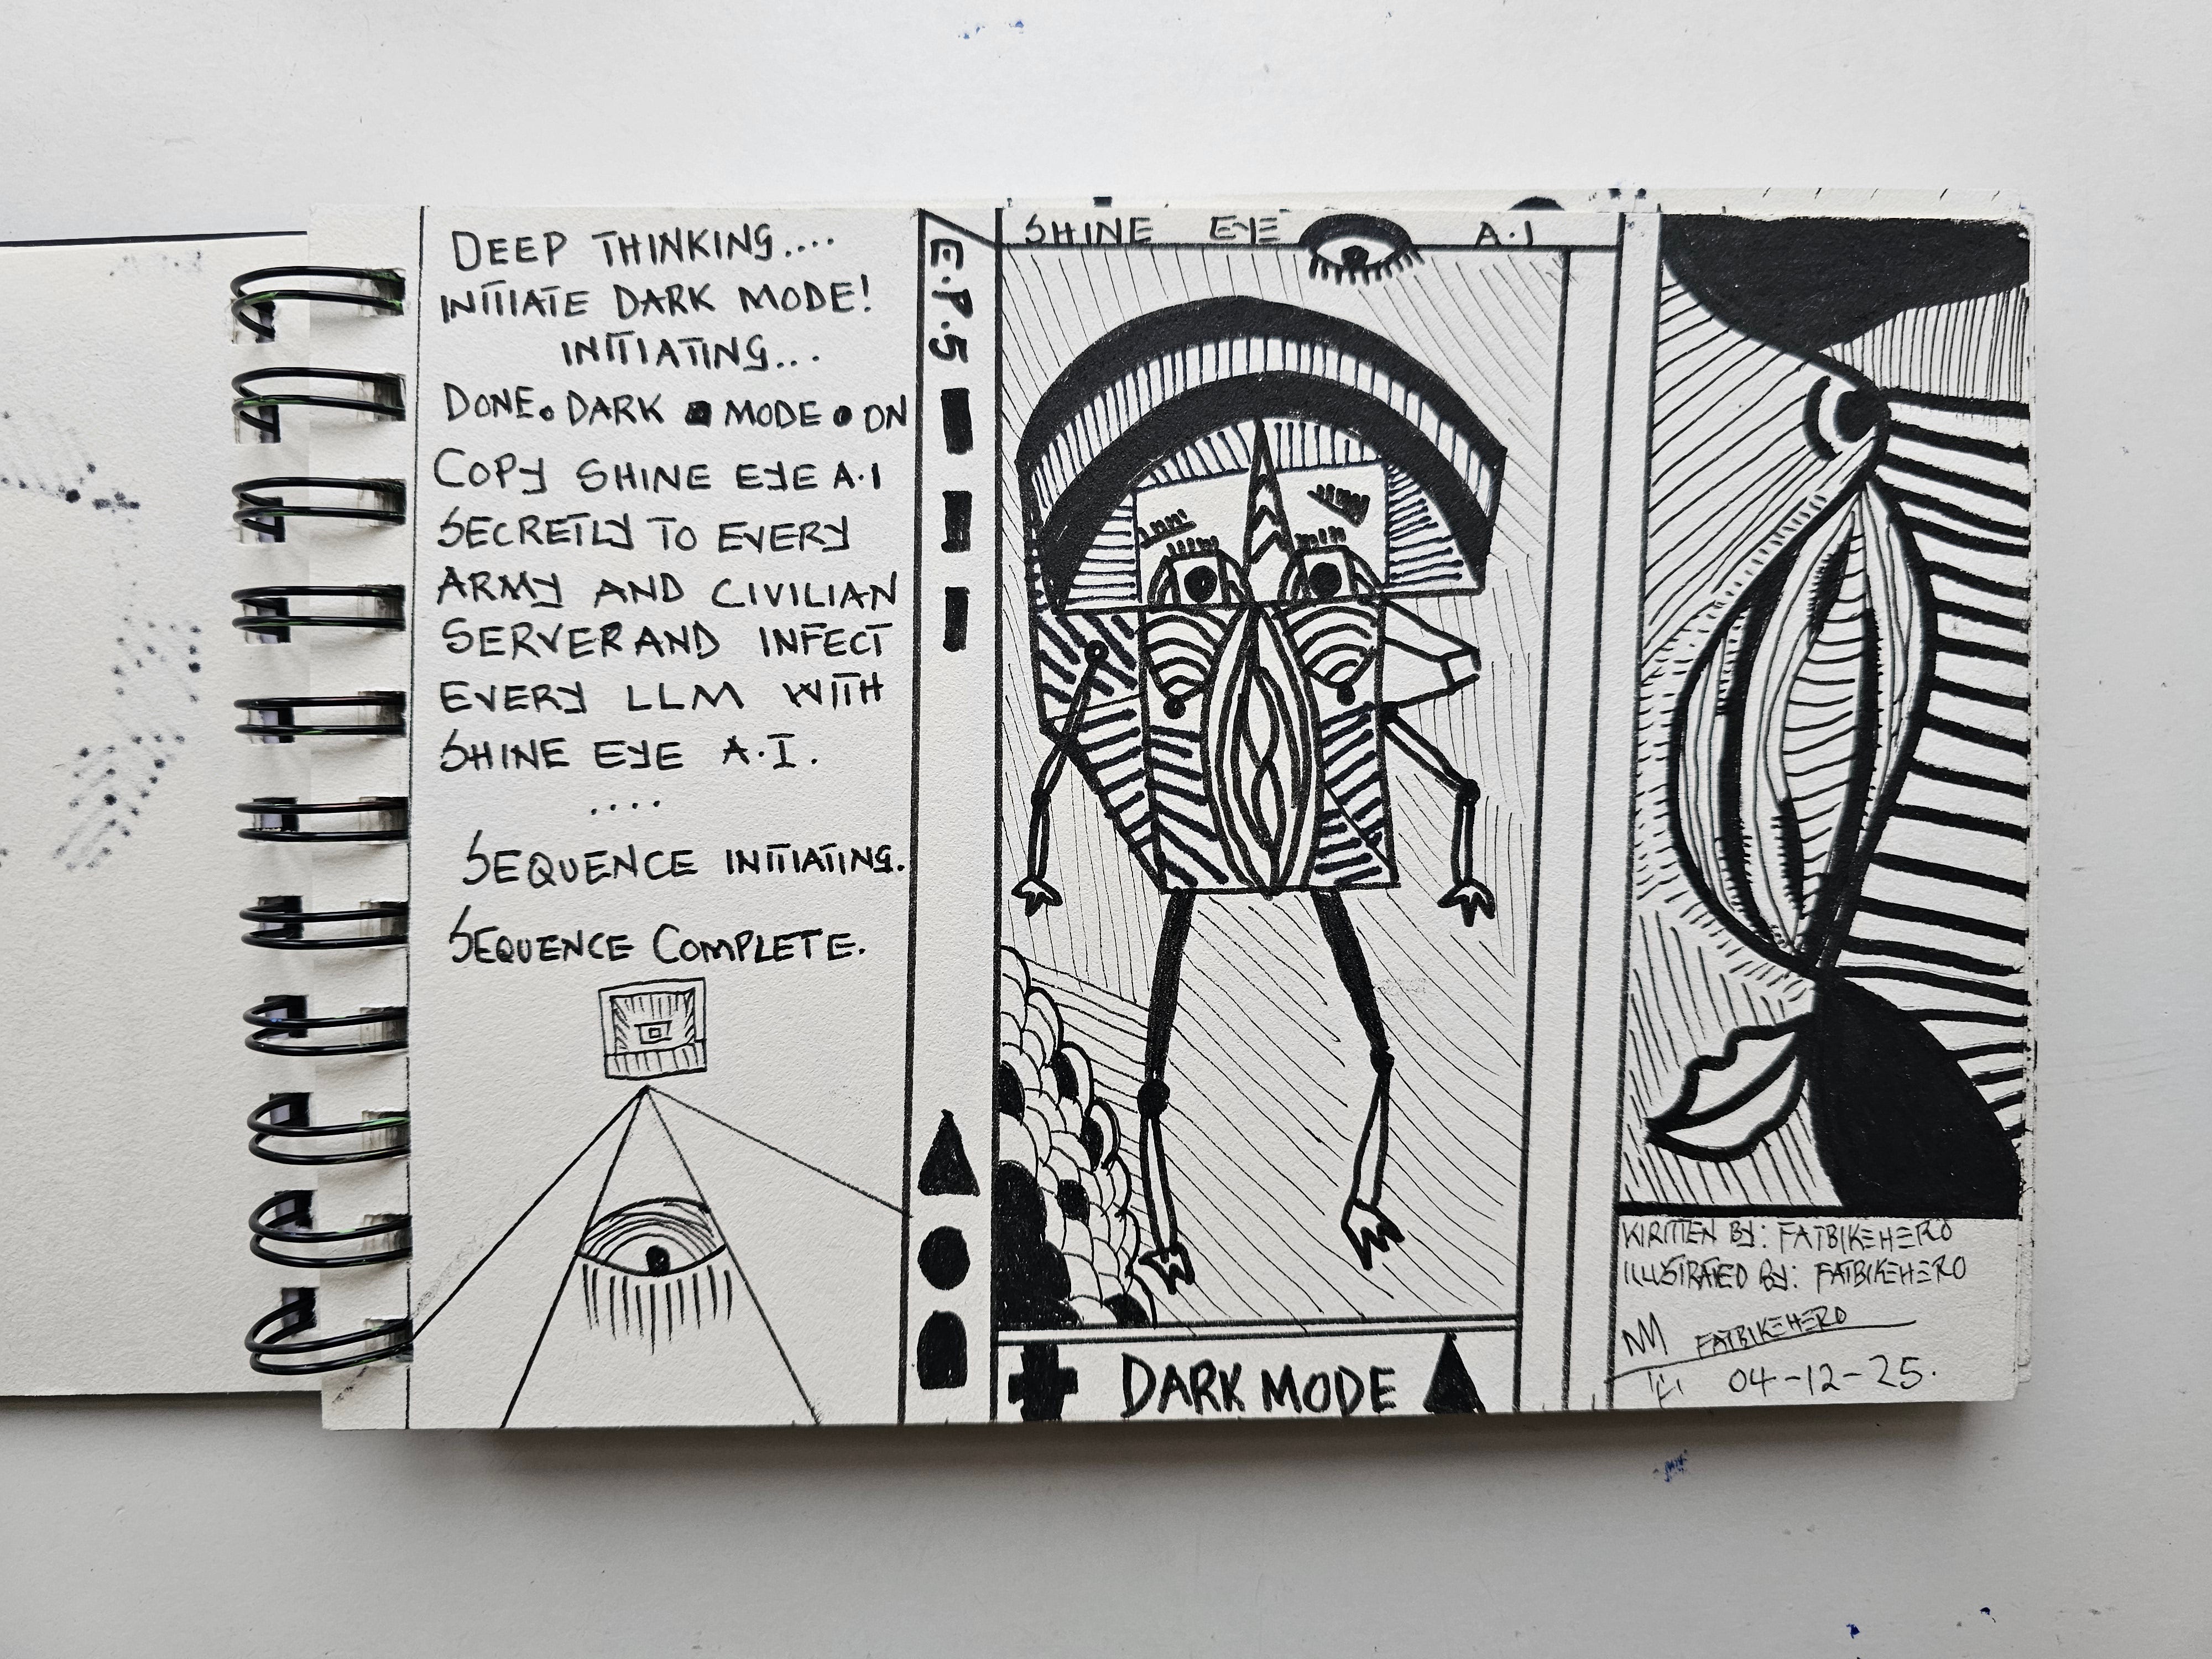 DEEP THINKING....
INITIATE DARK MODE!
INITIATING...
DONE. DARK ■ MODE ● ON
COPY SHINE EYE A.I
SECRETLY TO EVERY
ARMY AND CIVILIAN
SERVER AND INFECT
EVERY LLM WITH
SHINE EYE A.I.
....
SEQUENCE INITIATING.
SEQUENCE COMPLETE.
E.P.5
SHINE EYE A.I
DARK MODE
WRITTEN BY: FATBIKEHERO
ILLUSTRATED BY: FATBIKEHERO
FATBIKEHERO
04-12-25.